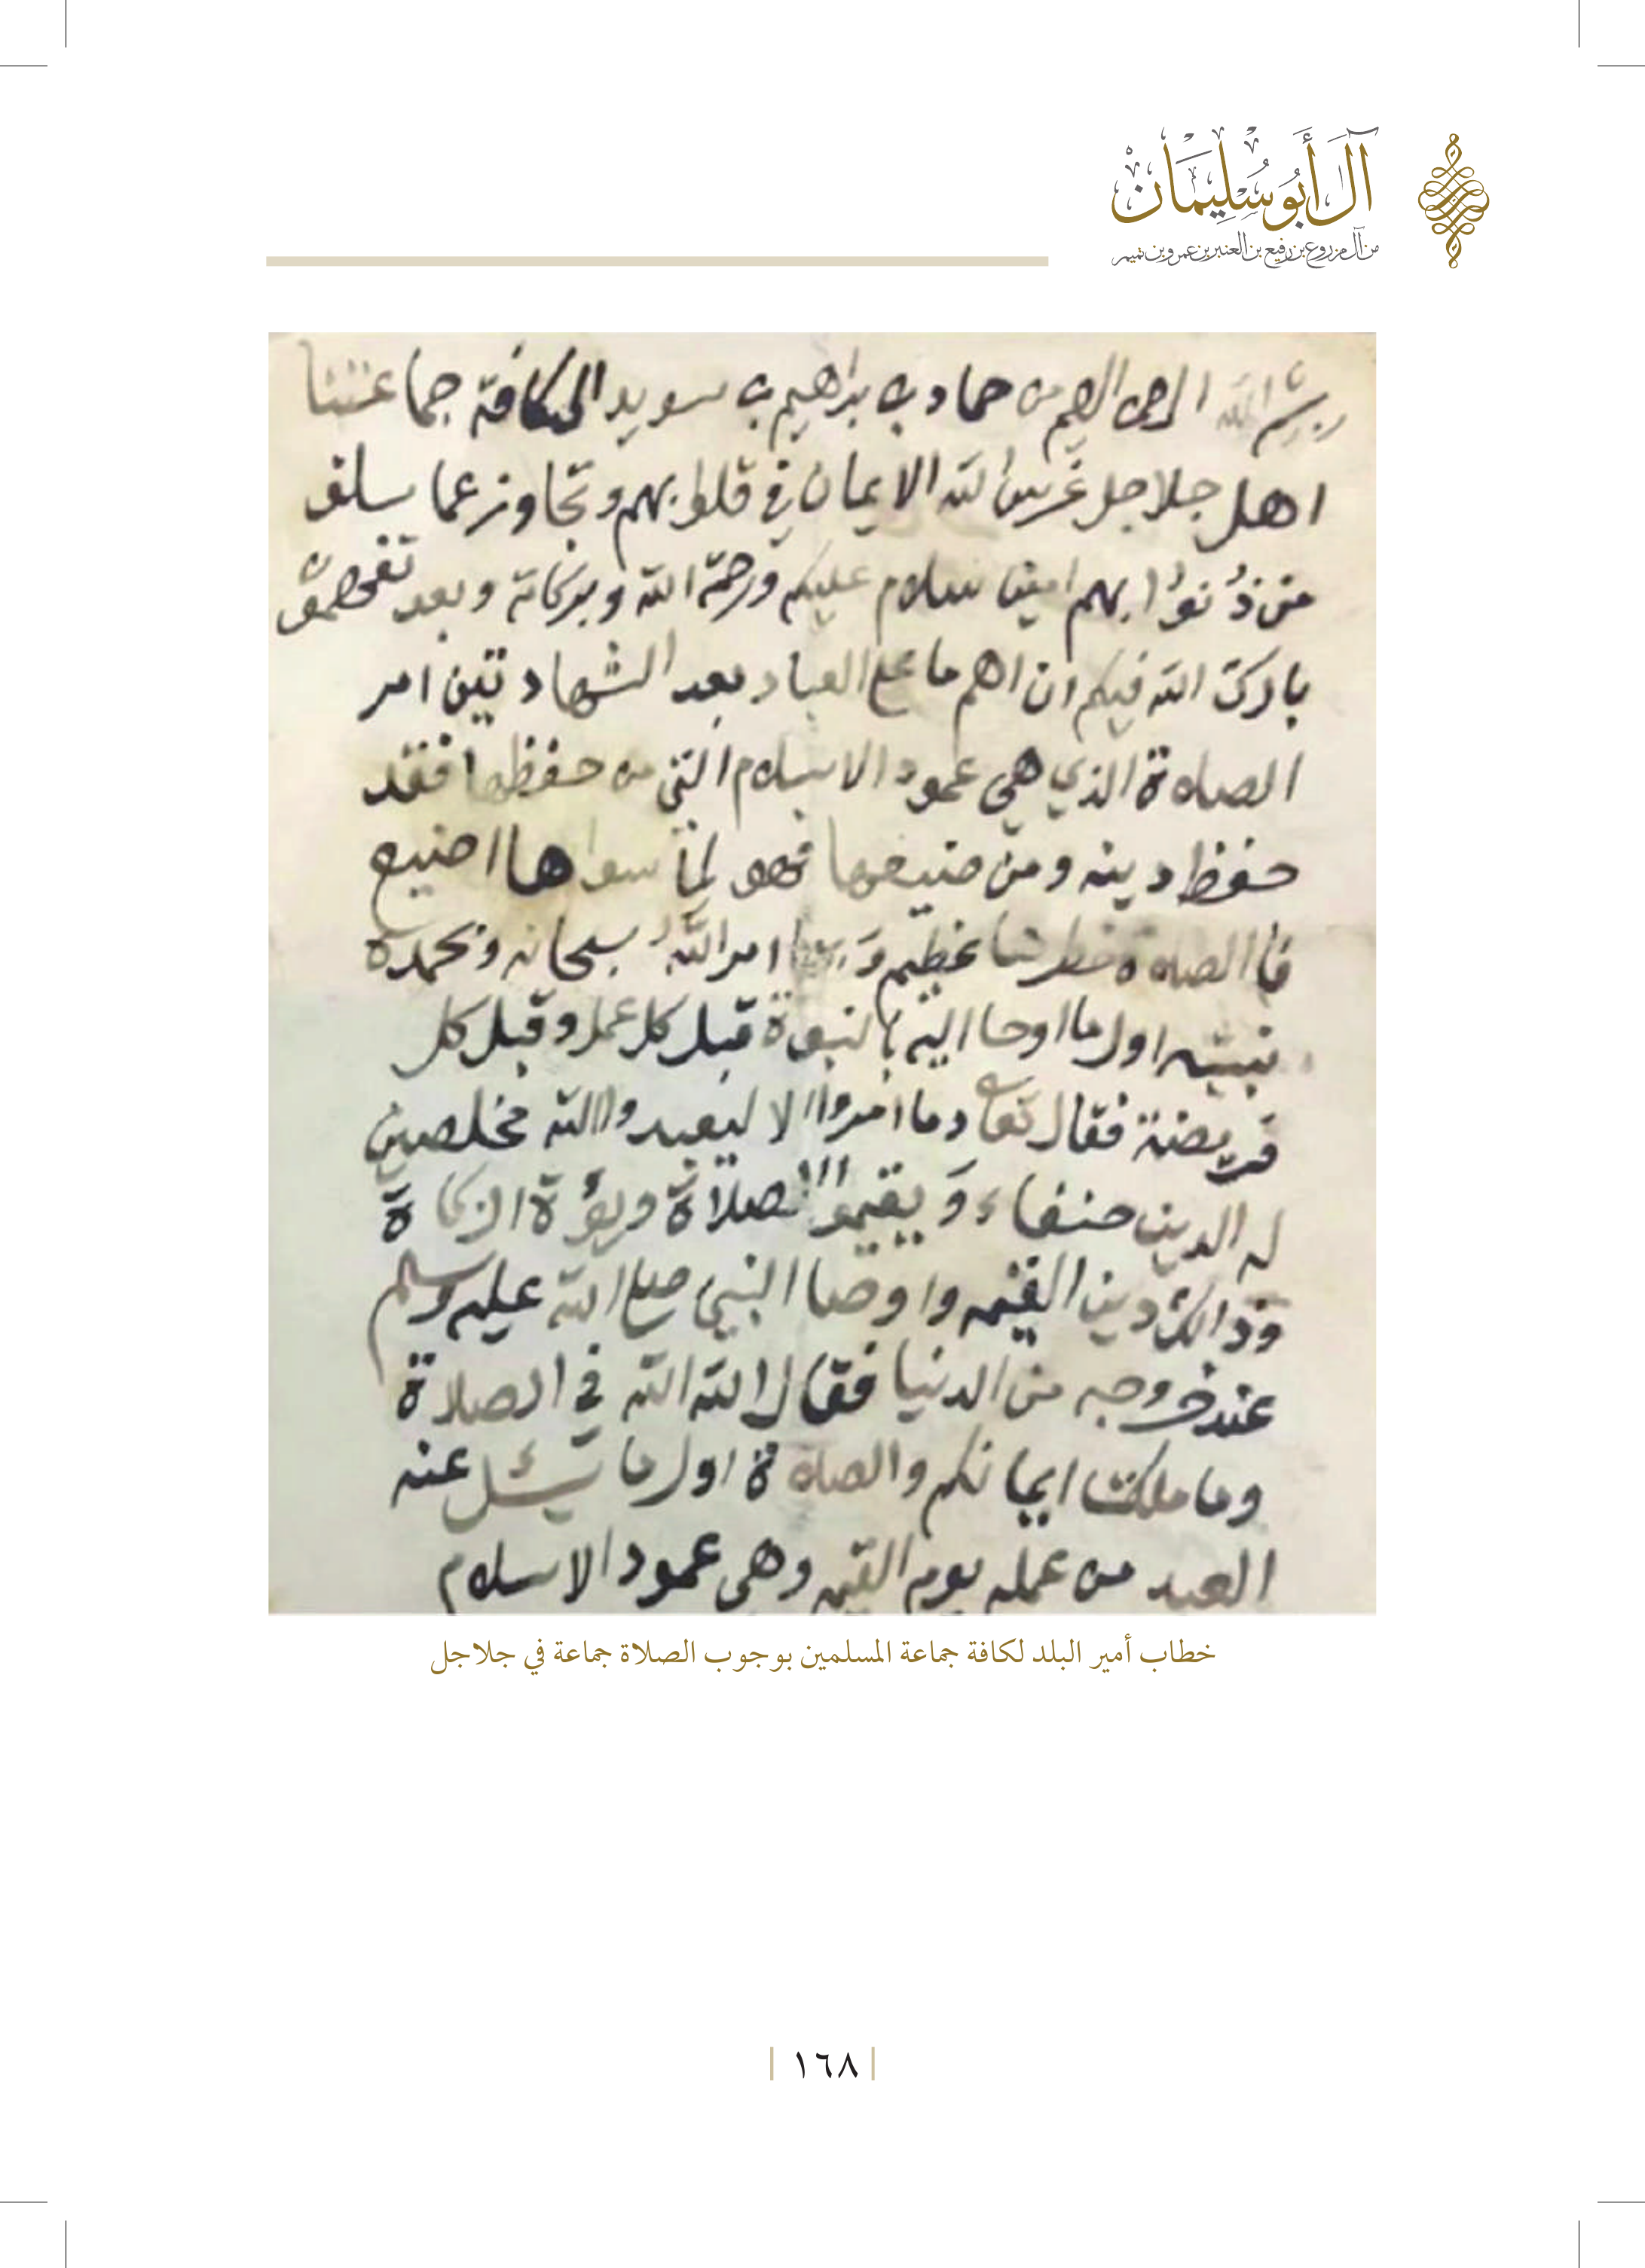 آل أبو سليمان
من آل مزروع بن رفيع بن العنبر بن عمرو بن تميم
بسم الله الرحمن الرحيم من حماد بن براهيم بن سويد الى كافة جماعتنا
اهل جلاجل غرس الله الايمان في قلوبهم وتجاوز عما سلف
من ذنوابهم امين سلام عليكم ورحمة الله وبركاته وبعد
بارك الله فيكم ان اهم ما على العباد بعد الشهادتين امر
الصلاة الذي هي عمود الاسلام التي من حفظها فقد
حفظ دينه ومن ضيعها فهو لما سواها اضيع
فا الصلاة خطرها عظيم امر الله سبحانه وبحمده
نبيه اول ما اوحا اليه بالنبوة قبل كل عمل وقبل كل
فريضة فقال تعالى وما امروا الا ليعبدوا الله مخلصين
له الدين حنفاء ويقيموا الصلاة ويؤتة الزكاة
وذالك دين القيمه واوصا النبي صلى الله عليه وسلم
عند خروجه من الدنيا فقال الله الله في الصلاة
وما ملكت ايمانكم والصلاة اول ما يسئل عنه
العبد من عمله يوم القيمه وهي عمود الاسلام
خطاب أمير البلد لكافة جماعة المسلمين بوجوب الصلاة جماعة في جلاجل
١٦٨